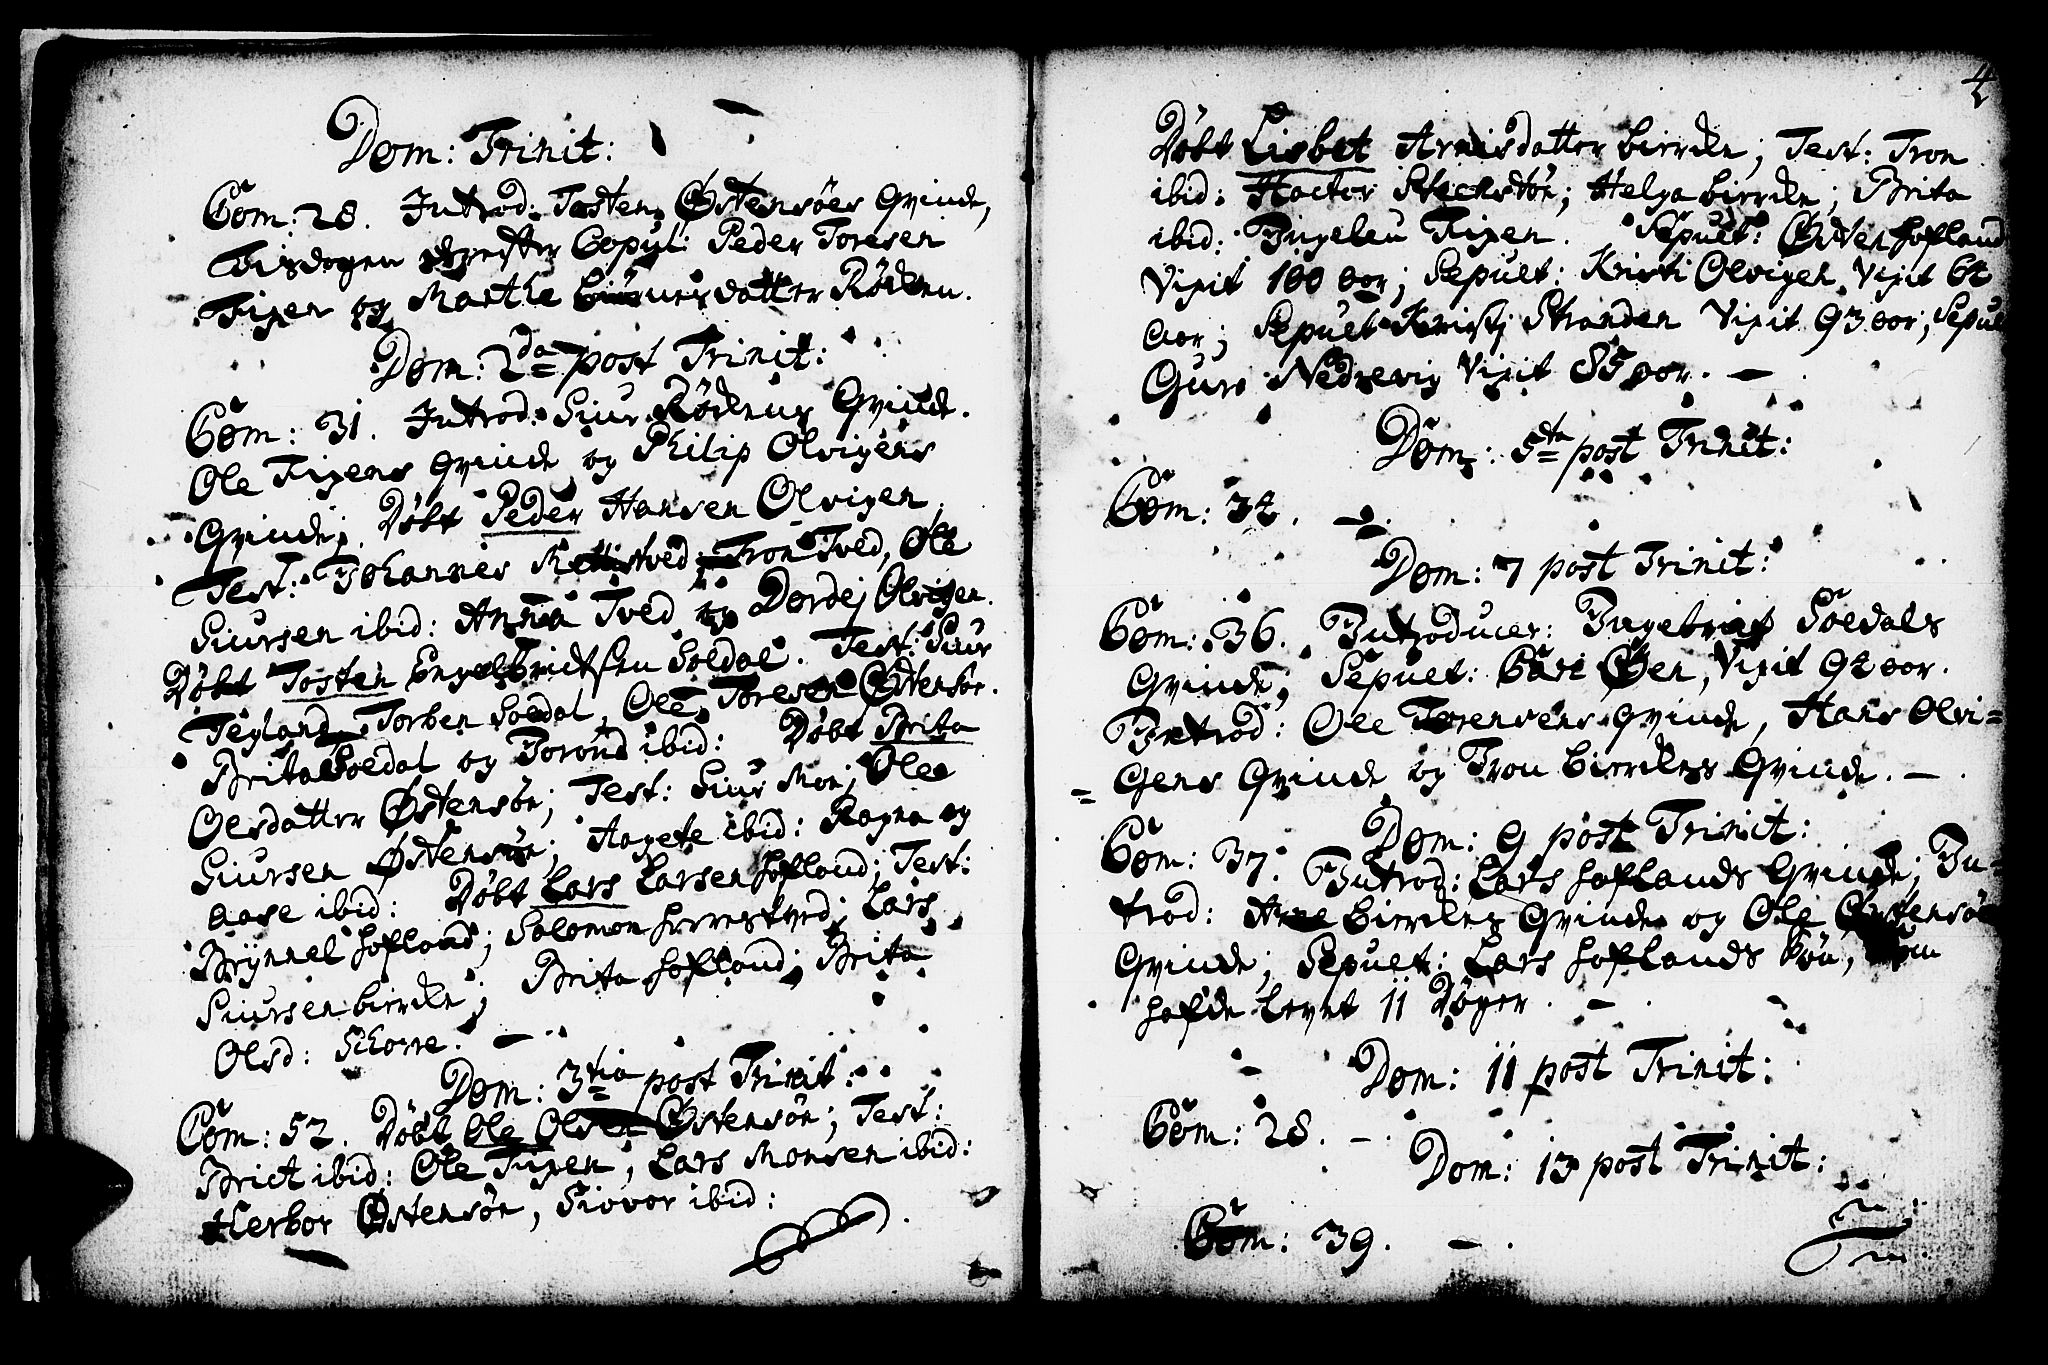 Dom: Trinit:
Com: 28. Introd: Tosten Østensøes Qvinde,
Tisdagen derefter Copul: Peder Toresen
Tigen og Marthe Siursdatter Röken.
Dom: 2da post Trinit:
Com: 31. Introd: Siur Rökens Qvinde.
Ole Tigens Qvinde og Philip Olvigens
Qvinde; Döbt Peder Hansen Olvigen
Test: Johannes Tron Tved, Ole
Siursen ibid: Anna Tved og Dordej Olvigen.
Döbt Tosten Engelbrictsen Soldal. Test: Siur
Tegland, Torben Soldal, Ole Toresen Østensön.
Brita Soldal og Torond ibid: Döbt Brita
Olesdatter Østensön; Test: Siur Mon; Ole
Siursen Østensön; Aagete ibid: Ragna og
Aase ibid: Döbt Lars Larsen Hofland; Test:
Brynnel Hofland; Solomon Lars
Siursen Birrken; Brita Hofland; Brita
Olsd: Skorre. —
Dom: 3tia post Trinit:
Com: 52. Döbt Ole Olsen Østensön; Test:
Brict ibid: Ole Tigen, Lars Monsen ibid:
Herbor Østensön, Siovor ibid:
4
Döbt Lisbet Arnisdatter Birrken; Test: Tron
ibid: Hactor Steenstön; Helga Birrken; Brita
ibid: Ingeleu Tigen. Sepult: Østen Hofland
Vixit 100 aar; Sepult: Kristi Olvigen Vixit 62
aar; Sepult Kristj Stranden Vixit 93 aar; Sepul
Guro Nedrevig Vixit 85 aar. —
Dom: 5ta post Trinit:
Com: 32. —
Dom: 7 post Trinit:
Com: 36. Introducer: Ingebrict Soldals
Qvinde; Sepult: Cari Øen, Vixit 92 aar.
Introd: Ole Torensens Qvinde, Hans Olvi=
=gens Qvinde og Tron Birrkens Qvinde. —
Dom: 9 post Trinit:
Com: 37. Introd: Lars Hoflands Qvinde; In-
trod: Arne Birrkens Qvinde og Ole Østensöe
Qvinde; Sepult: Lars Hoflands Sön, som
hafde levet 11 Döger. —
Dom: 11 post Trinit:
Com: 28. —
Dom: 13 post Trinit:
Com: 39. —